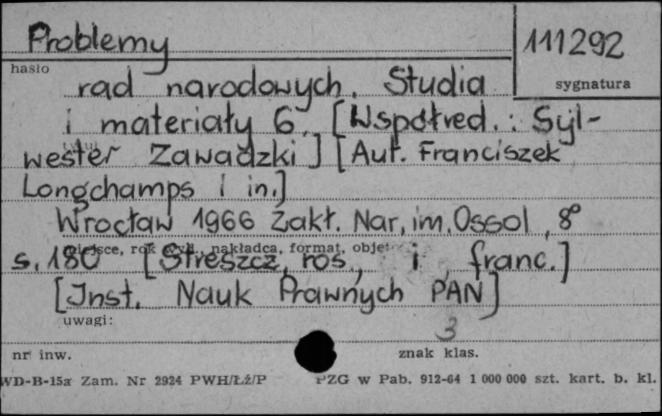 Problemy
111292
hasło
rad narodowych. Studia
sygnatura
i materiały 6. [Współred.: Syl-
wester Zawadzki] [Aut. Franciszek
Longchamps i in.]
Wrocław 1966 Zakł. Nar. im. Ossol, 8°
miejsce, rok wyd., nakładca, format, objęt
s. 180 [Streszcz. ros., i franc.]
[Inst. Nauk Prawnych PAN]
uwagi:
3
nr inw.
znak klas.
WD-B-15a Zam. Nr 2924 PWH/Łź/P
PZG w Pab. 912-64 1 000 000 szt. kart. b. kl.